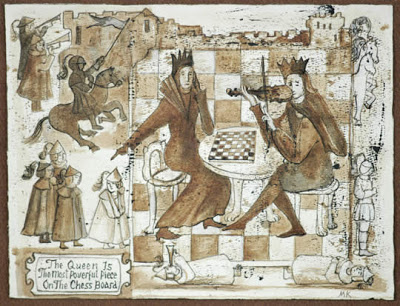 The Queen Is
The Most Poverful Piece
On The Chess Board
MK